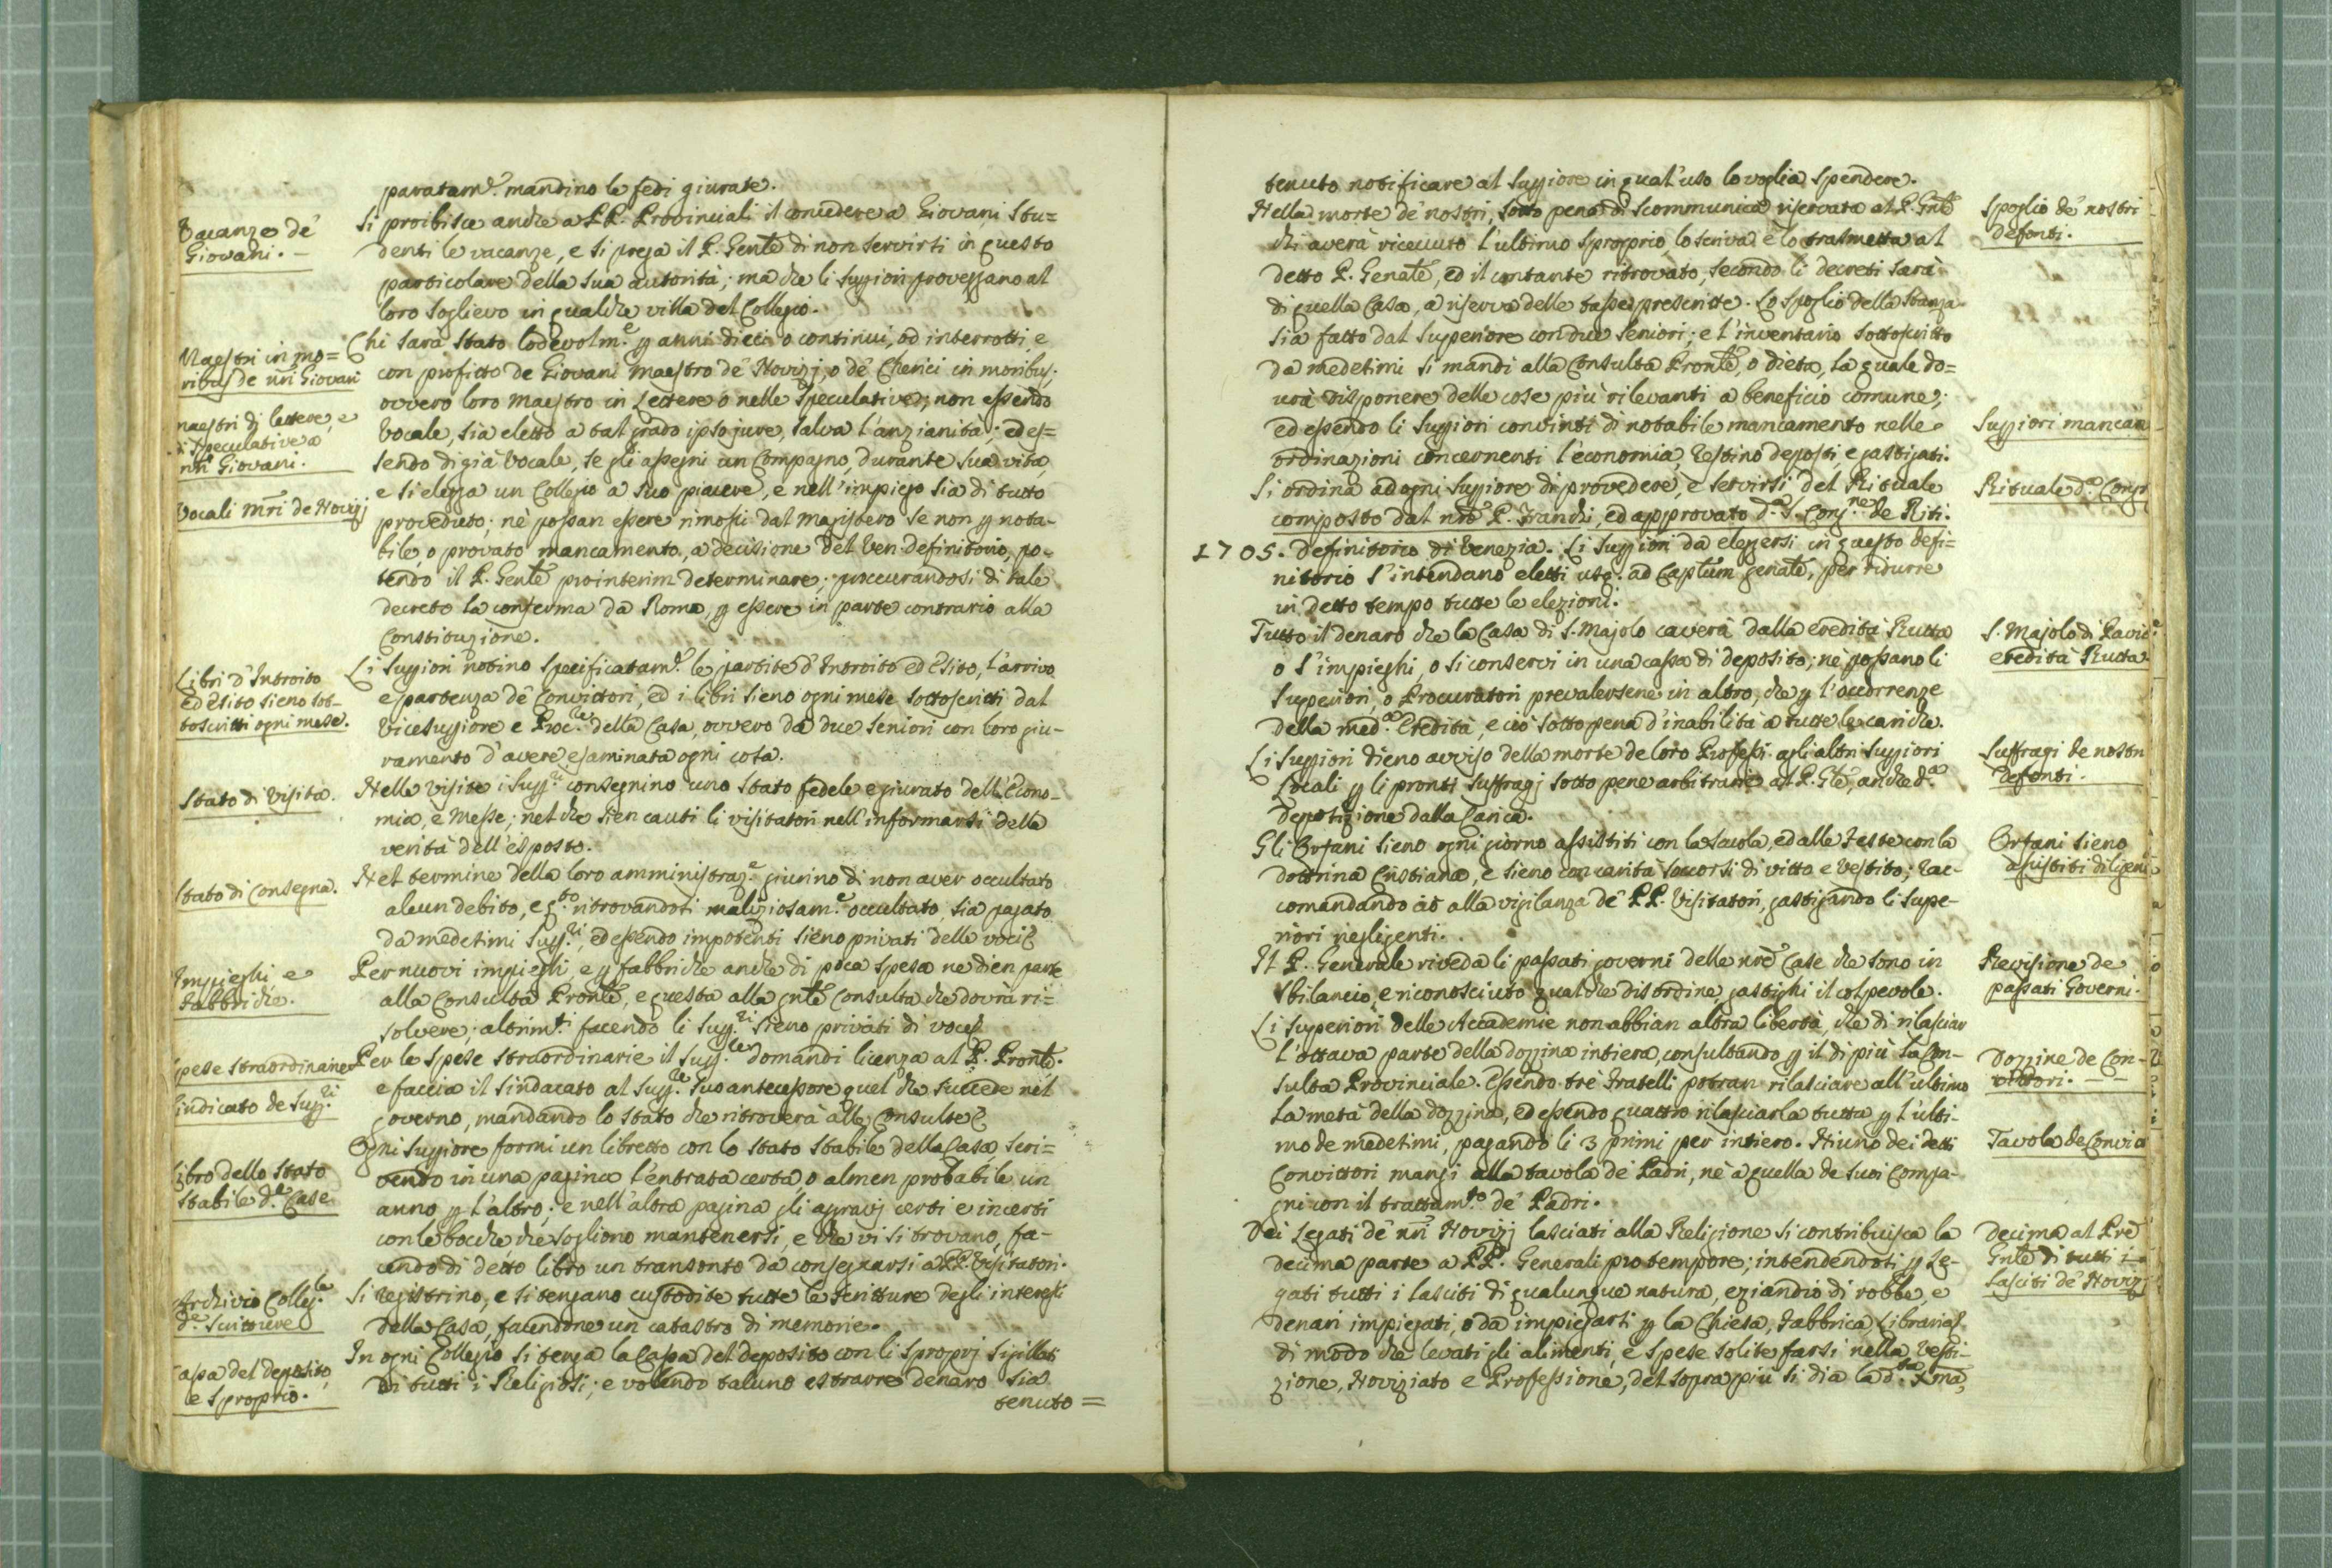 paratam.e mandino le fedi giurate.
Vacanze de'
Giovani. -
Si proibisce anche a PP. Provinciali il concedere a Giovani stu=
denti le vacanze, e si prega il P. Gen̄le di non servirsi in questo
particolare della sua autorità; ma che li Sup̄iori proveggano al
loro soglievo in qualche villa del Collegio.
Maestri in mo=
ribus de nr̄i Giovani
maestri di lettere, e
di speculativa a
nr̄i Giovani.
Vocali m̄ri de Novizj
Chi sarà stato lodevolm.e p anni dieci o continui, od interrotti, e
con profitto de Giovani maestro de' Novizj, o de' Chierici in moribus;
ovvero loro maestro in Lettere o nelle speculative; non essendo
vocale, sia eletto a tal grado ipso jure, salva l'anzianità; ed es=
sendo di già vocale, se gli assegni un Compagno, durante sua vita,
e si elegga un Collegio a suo piacere, e nell'impiego sia di tutto
proveduto; nè possan essere rimossi dal magistero se non p nota-
bile, o provato mancamento, a decisione del Ven. Definitorio, po-
tendo il P. Gen̄le prointerim determinare; proccurandosi di tale
decreto la conferma da Roma, p essere in parte contrario alla
Constituzione.
Libri d'Introito
ed Esito sieno sot-
toscritti ogni mese.
Li Sup̄iori notino specificatam.e le partite d'Introito ed Esito, l'arrivo
e partenza de' Convittori, ed i libri sieno ogni mese sottoscritti dal
Vicesup̄iore e Proc.re della Casa, ovvero da due Seniori con loro giu-
ramento d'avere esaminata ogni cosa.
Stato di Visita.
Nelle visite i Supp.ri consegnino uno stato fedele e giurato dell'Econo-
mia, e Messe; nel che sien cauti li visitatori nell'informarsi della
verità dell'esposto.
Stato di Consegna.
Nel termine della loro amministraz.e giurino di non aver occultato
alcun debito, e q.to ritrovandosi maliziosam.e occultato, sia pagato
da medesimi Supp.ri, ed essendo impotenti sieno privati delle voci
Impieghi e
Fabbriche.
Per nuovi impieghi, e p fabbriche anche di poca spesa ne dien parte
alla Consulta Pron̄le, e questa alla gn̄le Consulta che dovrà ri=
solvere; altrim.ti facendo li Supp.ri sieno privati di voce
Spese straordinarie
Sindicato de Supp.ri
Per le spese straordinarie il Supp.re domandi licenza al P. Pron̄le.
e faccia il sindacato al Supp.re suo antecessore quel che succede nel
governo, mandando lo stato che ritroverà alle Consulte
Libro dello Stato
stabile d.e Case
Ogni Sup̄iore formi un libretto con lo stato stabile della Casa scri=
vendo in una pagina l'entrata certa, o almen probabile un
anno p l'altro; e nell'altra pagina gli aggravj certi e incerti
con le bocche che sogliono mantenersi, e che vi si trovano, fa-
cendo di detto libro un transonto da consegnarsi a PP. Visitatori.
Archivio Colleg.le
d.e Scritture
Si registrino, e si tengano custodite tutte le scritture degli interessi
della Casa, facendone un catastro di memorie.
Cassa del deposito,
e sproprio.
In ogni Collegio si tenga la Cassa del deposito con li sproprj sigillati
di tutti i Religiosi; e volendo taluno estrarre denaro sia
tenuto =
tenuto notificare al Sup̄iore in qual'uso lo voglia spendere.
Spoglio de' nostri
defonti.
Nella morte de' nostri, sotto pena di scommunica riservata al P. Gn̄le
chi averà ricevuto l'ultimo sproprio, lo scriva e lo trasmetta al
detto P. Genāle, ed il contante ritrovato, secondo li decreti sarà
di quella Casa, a riserva delle tasse prescritte. Lo spoglio della stanza
sia fatto dal Superiore con due Seniori; e l'inventario sottoscritto
da medesimi si mandi alla Consulta Pron̄le, o dieta, la quale do=
urà disponere delle cose più rilevanti a beneficio comune;
Sup̄iori mancan
ed essendo li Sup̄iori convinti di notabile mancamento nelle
ordinazioni concernenti l'economia, restino deposti, e gastigati.
Rituale d.a Congr
Si ordina ad ogni Sup̄iore di provedere, e servirsi del Rituale
composto dal nr̄o P. Franchi, ed approvato d.a S. Cong.ne de Riti.
1705. Definitorio di Venezia. Li Sup̄iori da eleggersi in questo Defi=
nitorio s'intendano eletti usq. ad Capt̄um genāle, per ridurre
in detto tempo tutte le elezioni.
S. Majolo di Pavia
eredità Rutta
Tutto il denaro che la Casa di S. Majolo caverà dalla eredità Rutta
o s'impieghi, o si conservi in una cassa di deposito; nè possano li
Superiori, o Procuratori prevalersene in altro, che p l'occorrenze
della med.a Eredità, e ciò sotto pena d'inabilità a tutte le cariche.
Suffragi de nostri
defonti.
Li Sup̄iori dieno avviso della morte de loro Professi agli altri Sup̄iori
Locali p li pronti suffragj sotto pene arbitrarie al P. Gl̄e, anche d.a
deposizione dalla Carica.
Orfani sieno
assistiti diligen
Gli Orfani sieno ogni giorno assistiti con la scuola, ed alle Feste con la
dottrina Cristiana, e sieno con carità soccorsi di vitto e vestito; rac-
comandando ciò alla vigilanza de' PP. Visitatori, gastigando li Supe-
riori negligenti.
Revisione de
passati Governi.
Il P. Generale riveda li passati governi delle nr̄e Case che sono in
sbilancio, e riconosciuto qualche disordine, gastighi il colpevole.
Dozzine de Con-
vittori. - -
Li Superiori delle Accademie non abbian altra libertà, che di rilasciar
l'ottava parte della dozzina intiera, consultando p il di più la Con-
sulta Provinciale. Essendo trè Fratelli potran rilasciare all'ultimo
la metà della dozzina, ed essendo quattro rilasciarla tutta p l'ulti-
mo de medesimi, pagando li 3 primi per intiero. Niuno dei detti
Tavola de Convitt
Convittori mangi alla tavola de' Padri, nè a quella de suoi Compa-
gni con il trattam.to de' Padri.
Decima al Pr̄e
Gn̄le di tutti i
lasciti de' Novizj
Dei Legati de' nr̄i Novizj lasciati alla Religione si contribuisca la
decima parte a PP. Generali pro tempore; intendendosi p Le-
gati tutti i lasciti di qualunque natura, eziandio di robbe, e
denari impiegati, o da impiegarsi p la Chiesa, Fabbrica, Libraria
di modo che levati gli alimenti, e spese solite farsi nella vesti-
zione, Noviziato e Professione, del sopra più si dia la d.ta Xma,